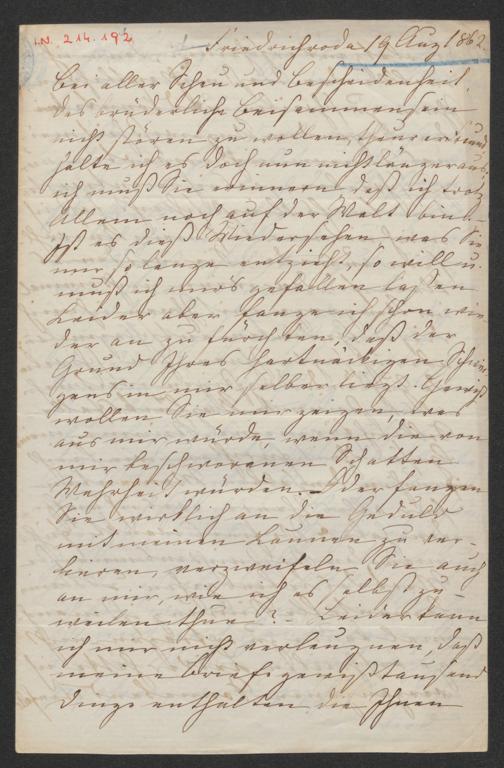 I.N. 214.192
Friedrichroda 19 Aug 1862
Bei aller Scheu und Bescheidenheit,
das brüderliche Beisammensein
nicht stören zu wollen, theurer Freund
halte ich es doch nun nicht länger aus,
ich muß Sie erinnern daß ich trotz
Allem noch auf der Welt bin.
Ist es dieß Wiedersehen was Sie
mir so lange entzieht, so will u.
muß ich mirs gefallen lassen
Leider aber fange ich schon wie-
der an zu fürchten, daß der
Grund Ihres hartnäckigen Schwei
gens in mir selber liegt. Gewiß
wollen Sie mir zeigen, was
aus mir würde, wenn die von
mir beschworenen Schatten
Wahrheit würden. – Oder fangen
Sie wirklich an die Geduld
mit meinen Launen zu ver-
lieren, verzweifeln Sie auch
an mir, wie ich es selbst zu-
weilen thue? – Leider kann
ich mir nicht verleugnen, daß
meine Briefe gewiß tausend
Dinge enthalten die Ihnen